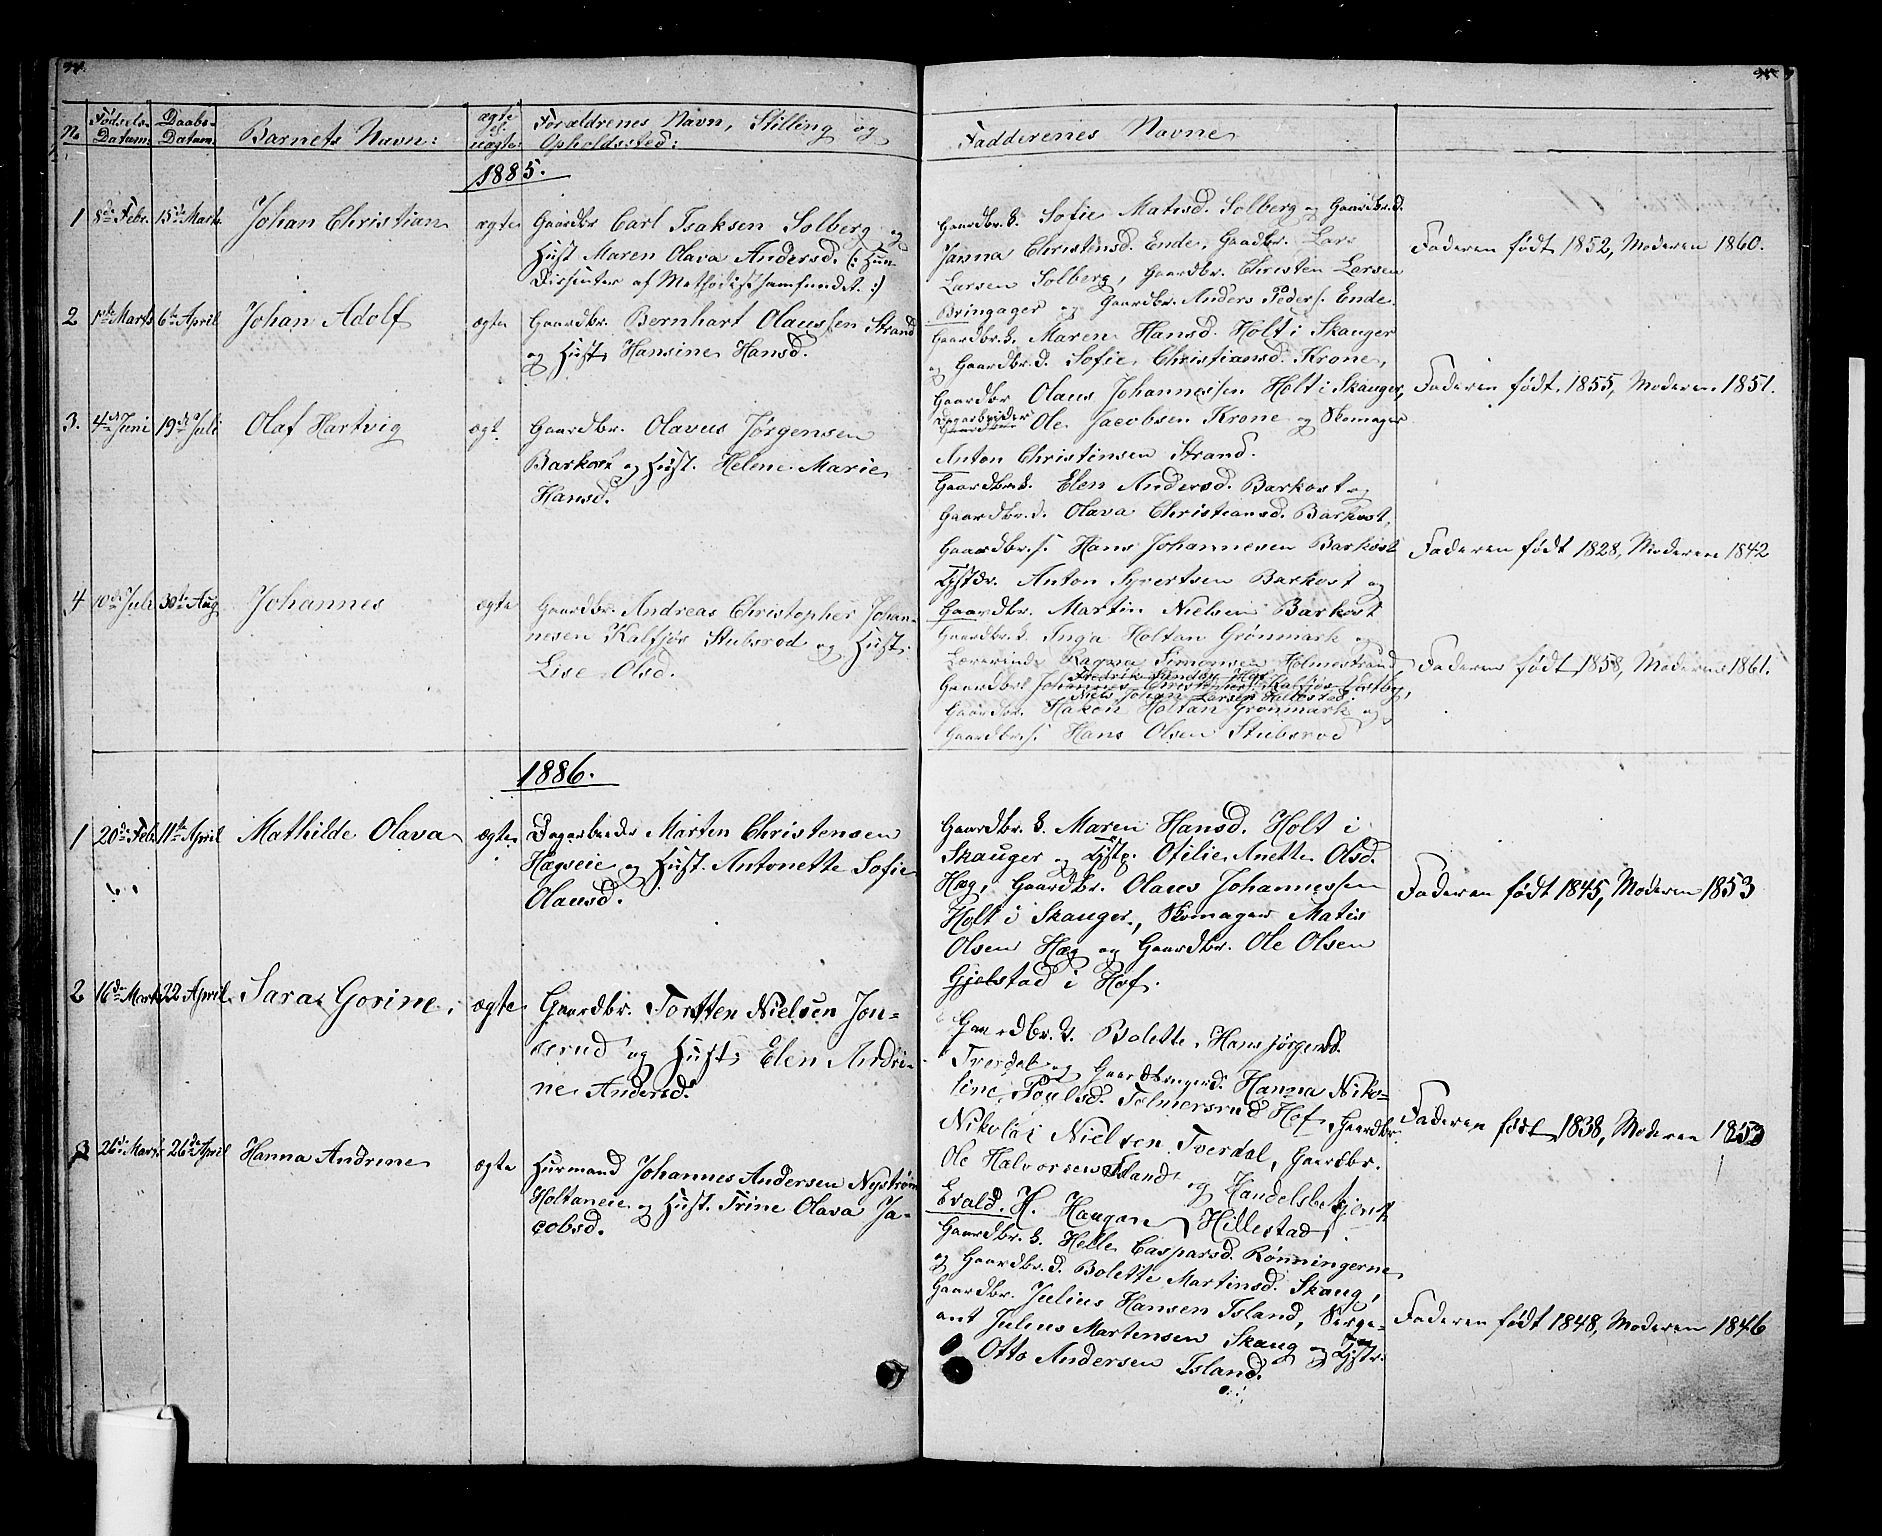 No Fødsels- Datum: Daabs- Datum: Barnets Navn: ægte el. uægte: Forældrenes Navn, Stilling og Opholdssted:
1885.
1 8de Febr. 15de Marts Johan Christian ægte Gaardbr Carl Isaksen Solberg og
Hust Maren Olava Andersd. (: Hun
Dissenter af Methodistsamfundet. :)
2 1ste Marts 6te April Johan Adolf ægte Gaardbr. Bernhart Olaussen Strand
og Hust. Hansine Hansd.
3. 4de Juni 19de Juli Olaf Hartvig ægt. Gaardbr. Olavus Jørgensen
Barkost og Hust. Helene Marie
Hansd.
4 10de Juli 30te Aug Johannes ægte Gaardbr. Andreas Christopher Johan-
nesen Kalfjøs Stubsrød og Hust.
Lise Olsd.
1886.
1 20de Feb. 11te April Mathilde Olava ægte Dagarbeider Morten Christensen
Hagseie og Hust. Antonette Sofie
Olausd.
2 16de Marts 22 April Sara Gorine ægte Gaardbr. Torsten Nielsen Jon-
serud og Hust. Elen Andri-
ne Andersd.
3 26de Marts 26de April Hanna Andrine ægte Husmand Johannes Andersen Nystrøm
Holtaneie og Hust. Trine Olava Ja-
cobsd.
Fadderenes Navne
Gaardbr.k. Sofie Matisd. Solberg og Gaardbr.d.
Janna Christinsd. Ende, Gaardbr. Lars
Larsen Solberg, Gaardbr. Christen Larsen
Bringager og Gaardbr. Anders Peders. Ende.
Faderen født 1852, Moderen 1860.
Gaardbr.k. Maren Hansd. Holt i Skauger
og Gaardbr.d. Sofie Christiansd. Krone,
Gaardbr Olaus Johannessen Holt i Skauger,
Dagarbeider Ole Jacobsen Krone og Skomager
Anton Christinsen Strand.
Faderen født 1855, Moderen 1851.
Gaardbr.k. Elen Andersd. Barkost og
Gaardbr.d. Olava Christiansd. Barkost,
Gaardbr.s. Hans Johannesen Barkost
Anton Syvertsen Barkost og
Gaardbr. Martin Nielsen Barkost
Faderen født 1828, Moderen 1842
Gaardbr.k. Inga Holtan Grønmark og
Lærerinde Ragna Simonsen Holmestrand,
Fredrik
Gaardbr. Johannes Christophers. Kalfjøs
Niels Johan Larsen
Gaardbr. Hakon Holtan Grønmark og
Gaardbr.s. Hans Olsen Stubsrød
Faderen født 1858, Moderen 1861.
Gaardbr.k. Maren Hansd. Holt i
Skauger og Otilie Anette Olsd.
Hæg, Gaardbr. Olaus Johannessen
Holt i Skauger, Skomager Matis
Olsen Hæg og Gaardbr. Ole Olsen
Gjelstad i Hof.
Faderen født 1845, Moderen 1853
Gaardbr.k. Bolette Hansjørgensd.
Tverdal og Gaardbrugerd. Hanna Niko-
line Poulsd. Tolmersrud Hof, Gaardbr.
Nikolai Nielsen Tverdal, Gaardbr.
Ole Halvorsen Island og Handelsbetjent
Evald. H. Haugan Hillestad.
Faderen født 1838, Moderen 1853
Gaardbr.k. Helle Caspersd. Rønningerne
og Gaardbr.d. Bolette Martinsd. Skaug,
Gaardbr. Julius Hansen Island, Serge-
ant Julius Martensen Skaug og
Otto Andersen Island.
Faderen født 1848, Moderen 1846